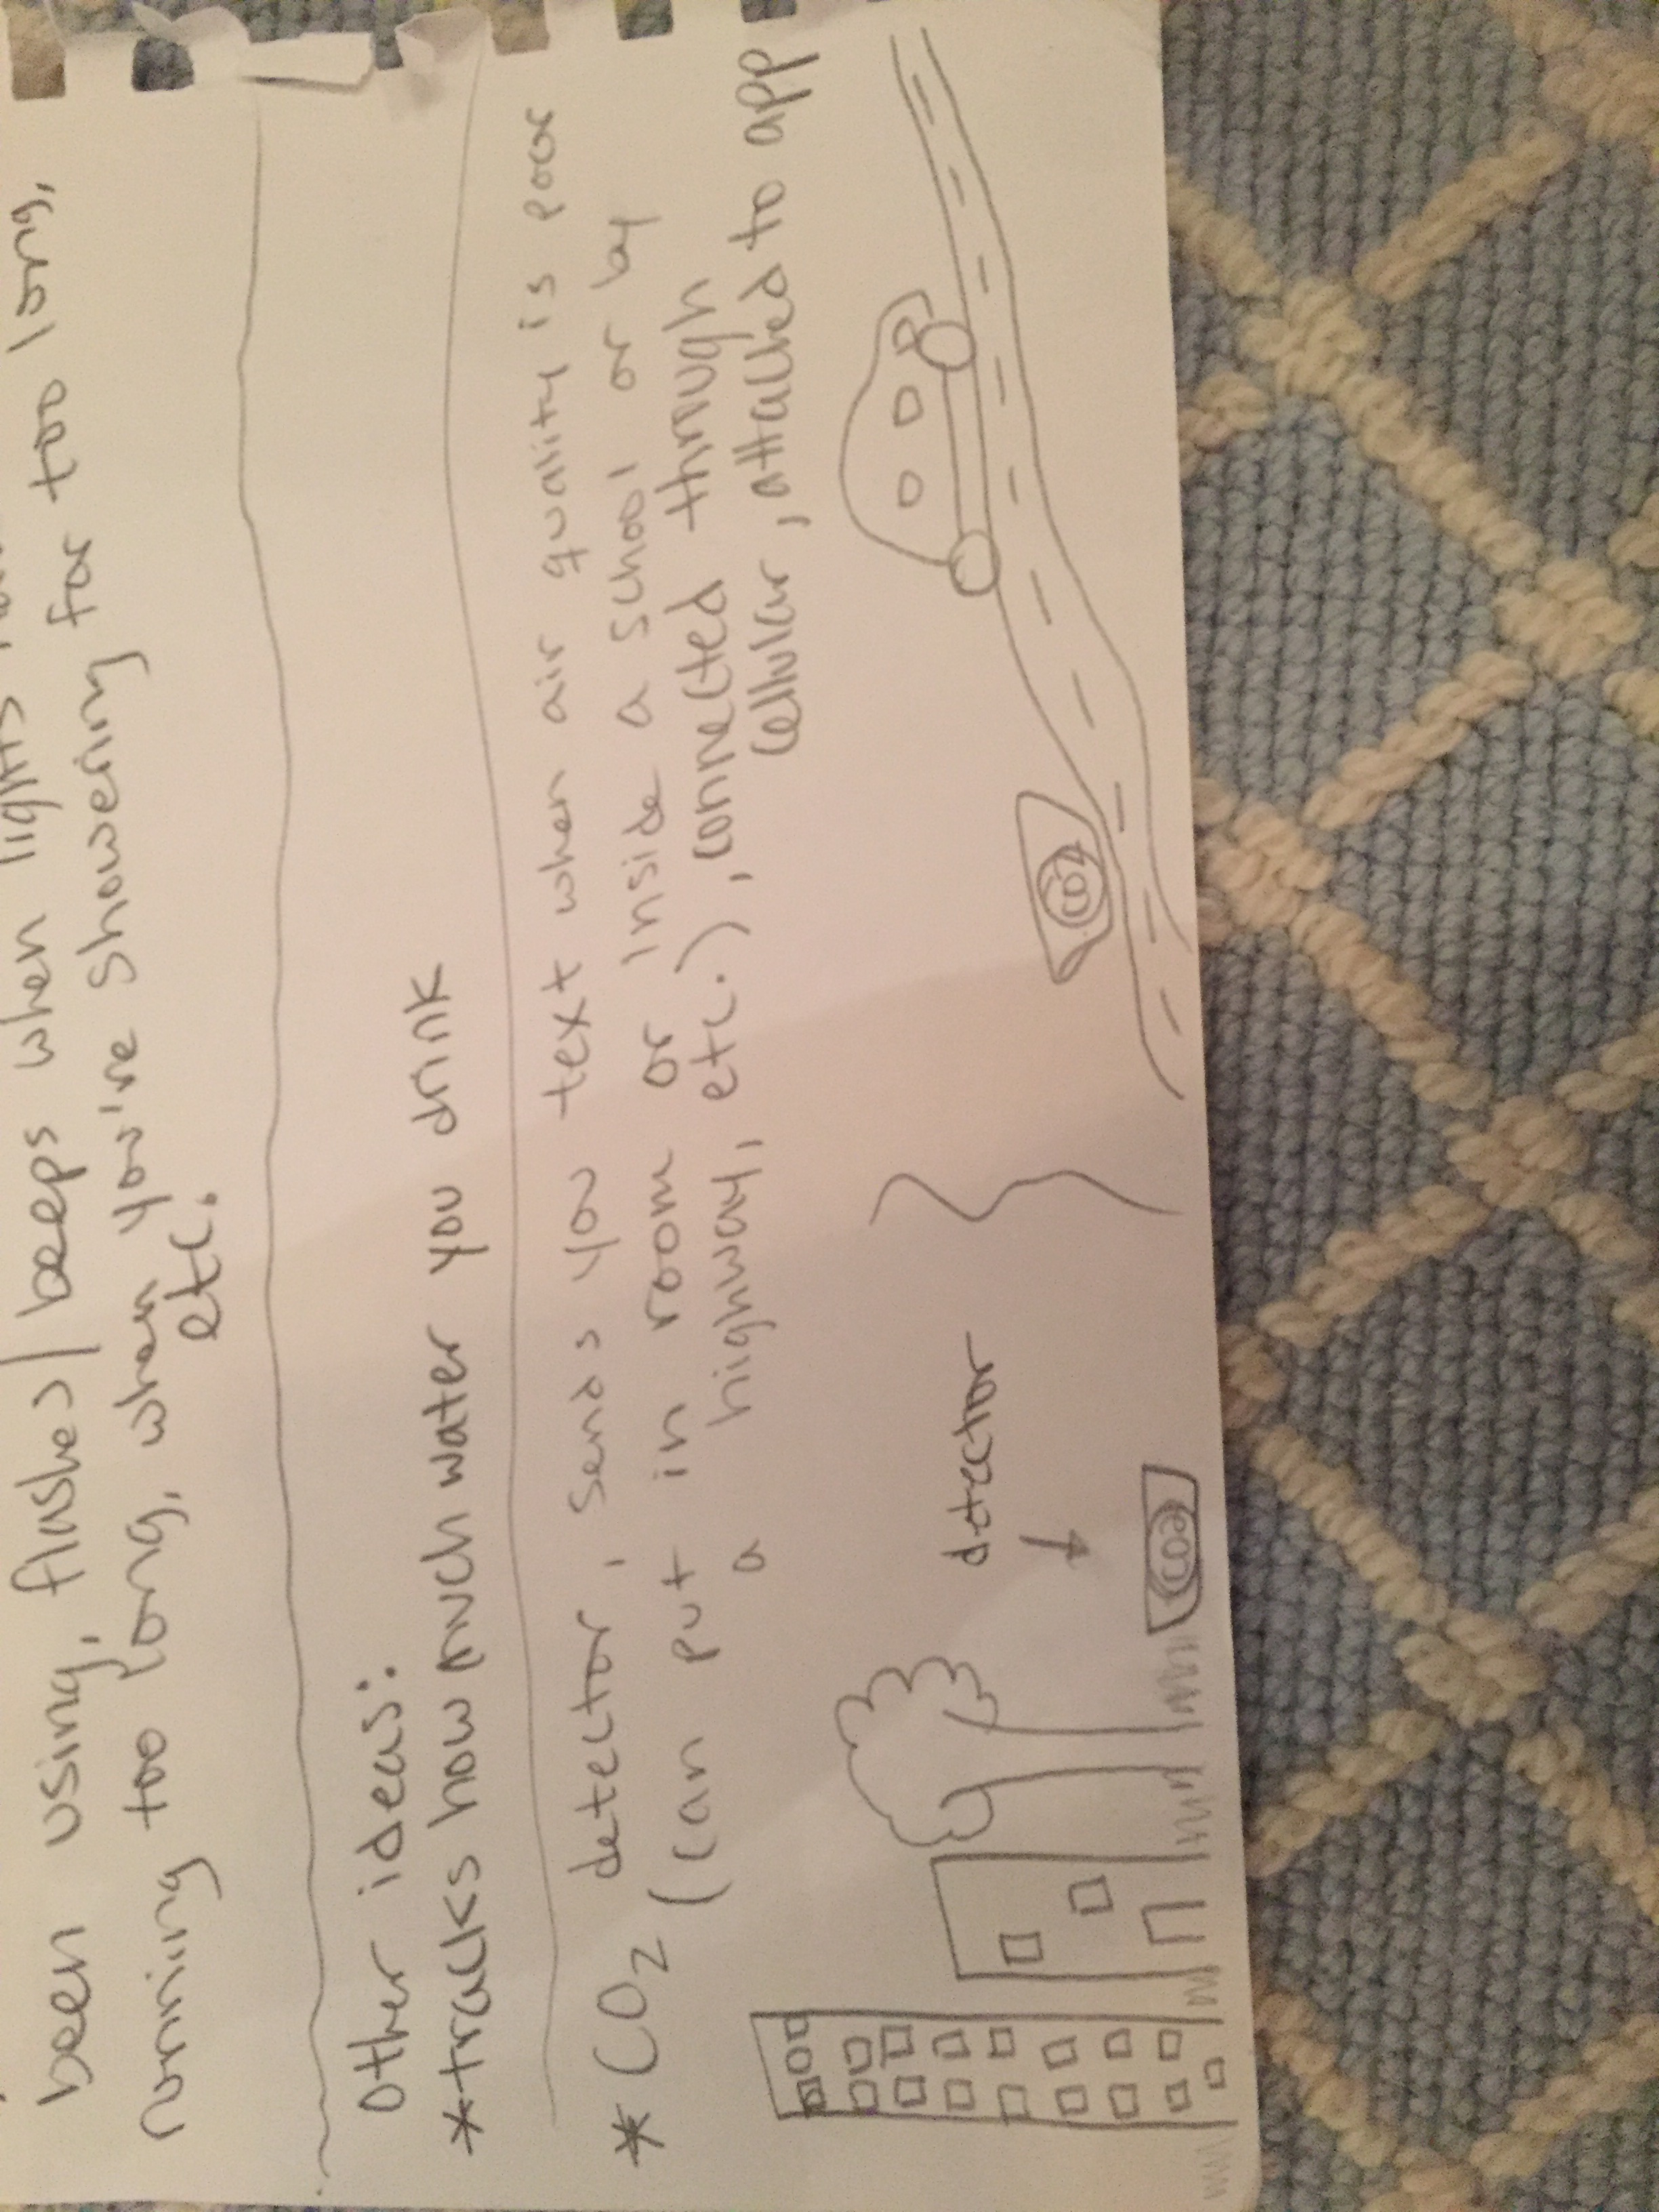 beeps when lights
been using, flashes/beeps when lights
running too long, when you're showering for too long,
etc.
other ideas:
*tracks how much water you drink
*CO2 detector, sends you text when air quality is poor
(can put in room or inside a school or by
a highway, etc.), connected through
cellular, attached to app
detector
CO2
CO2